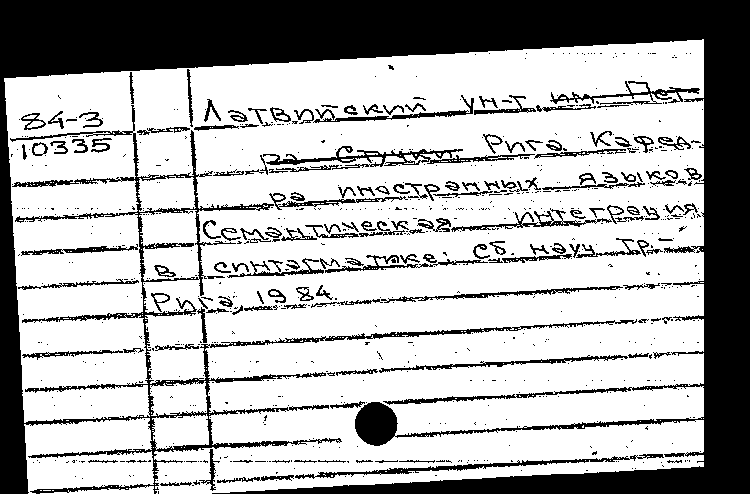 84-3
10335
Латвийский ун-т им. Пет-
ра Стучки, Рига. Кафед-
ра иностранных языков
Семантическая интеграция
в синтагматике: Сб. науч. тр.-
Рига, 1984.